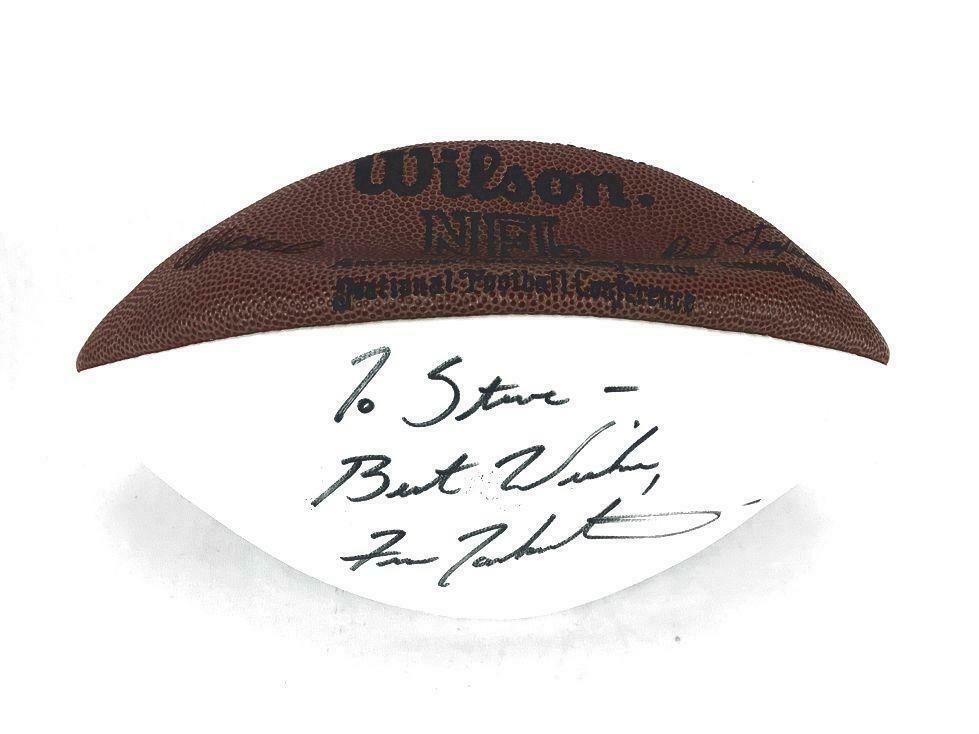 Wilson.
NFL
National Football Conference
To Steve -
Best Wishes,
Fran Tarkenton